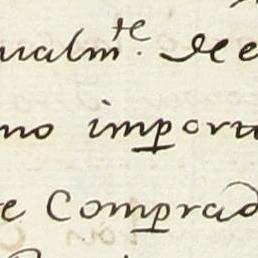 ualm.te de e
no impor
e Comprad